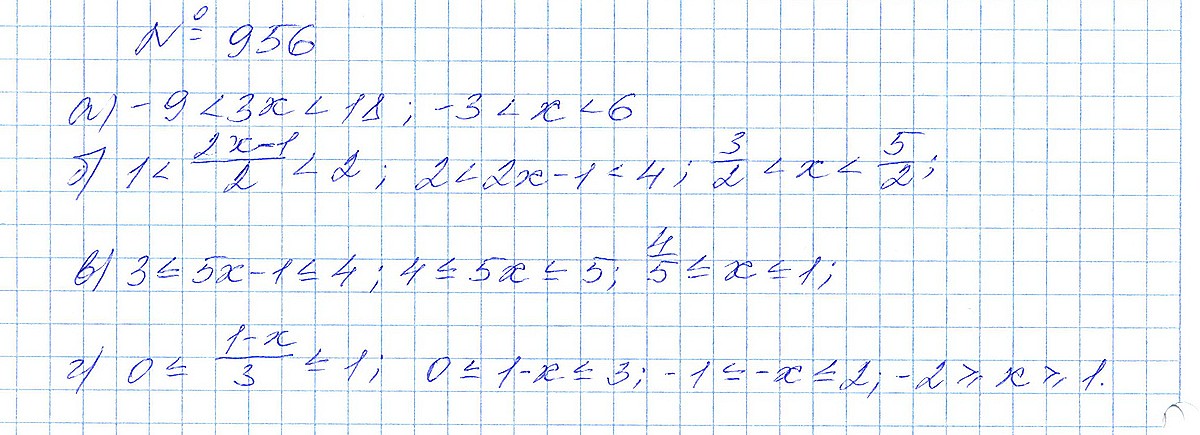 № 956
а) -9 < 3x < 18; -3 < x < 6
б) 1 < (2x-1)/2 < 2; 2 < 2x-1 < 4; 3/2 < x < 5/2;
в) 3 ≤ 5x-1 ≤ 4; 4 ≤ 5x ≤ 5; 4/5 ≤ x ≤ 1;
г) 0 ≤ (1-x)/3 ≤ 1; 0 ≤ 1-x ≤ 3; -1 ≤ -x ≤ 2; -2 ≥ x ≥ 1.